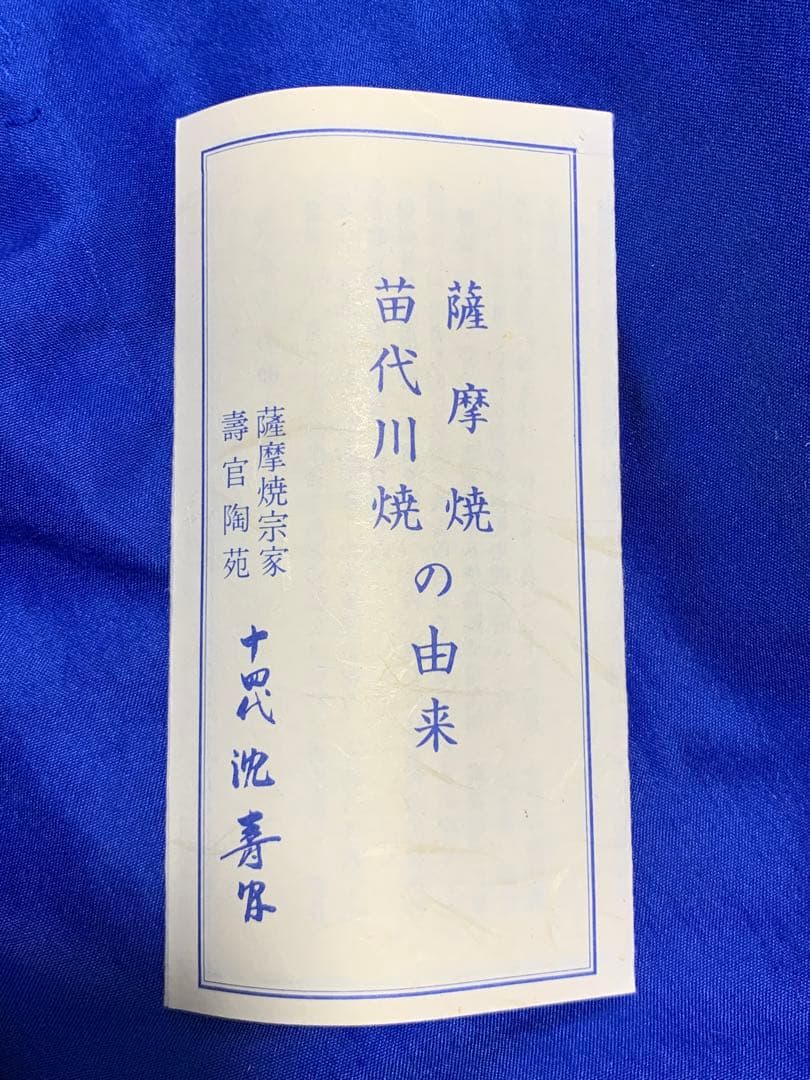 薩摩焼
苗代川焼
の由来
薩摩焼宗家
壽官陶苑
十四代 沈 壽官